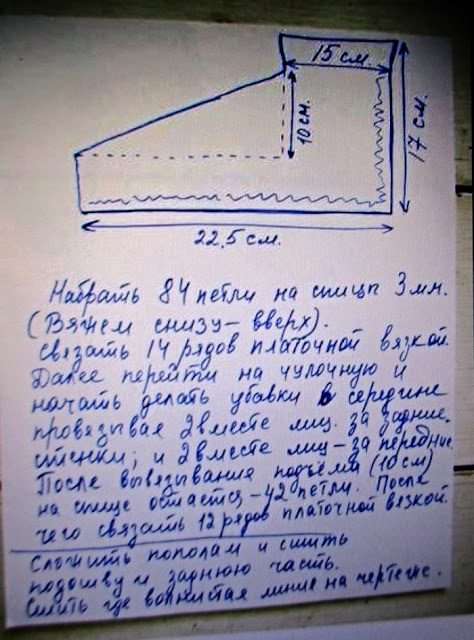 15 см.
10 см.
17 см.
22,5 см.
Набрать 84 петли на спицы 3мм.
(Вяжем снизу-вверх).
Связать 14 рядов платочной вязкой.
Далее перейти на чулочную и
начать делать убавки в середине
провязывая 2вместе лиц. за задние
стенки; и 2вместе лиц-за передние.
После вывязывания подъёма (10см)
на спице остается-42 петли. После
чего связать 12 рядов платочной вязкой.
Сложить пополам и сшить
подошву и заднюю часть.
Сшить где волнистая линия на чертеже.